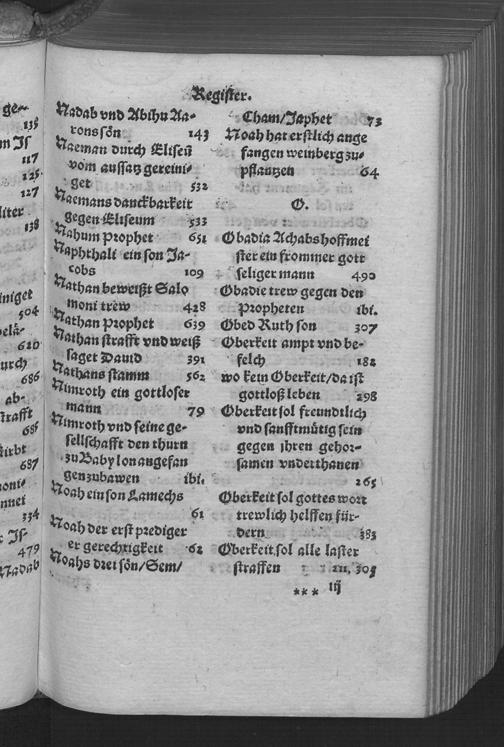 ge-
135
m Js
117
125
127
liter
138
iniget
504
elä-
620
urch
686
ab-
strafft
685
kirbt
687
noni-
nnei
334
r Js-
479
Nadab
Register.
Nadab vnd Abihu Aa-
rons sön 143
Naeman durch Eliseū
vom aussatz gereini-
get 532
Naemans danckbarkeit
gegen Eliseum 533
Nahum Prophet 651
Naphthali ein son Ja-
cobs 109
Nathan beweißt Salo
moni trew 428
Nathan Prophet 639
Nathan strafft vnd weiß
saget Dauid 391
Nathans stamm 562
Nimroth ein gottloser
mann 79
Nimroth vnd seine ge-
sellschafft den thurn
zu Babylon angefan
gen zubawen ibi.
Noah ein son Lamechs
61
Noah der erst prediger
er gerechtigkeit 62
Noahs drei sön/Sem/
Cham/Japhet 73
Noah hat erstlich ange
fangen weinberg zu-
pflantzen 64
O.
Obadia Achabs hoffmei
ster ein frommer gott
seliger mann 490
Obadie trew gegen den
Propheten ibi.
Obed Ruth son 307
Oberkeit ampt vnd be-
felch 182
wo kein Oberkeit/da ist
gottloß leben 298
Oberkeit sol freundtlich
vnd sanfftmütig sein
gegen jhren gehor-
samen vnderthanen
265
Oberkeit sol gottes wort
trewlich helffen für-
dern 383
Oberkeit sol alle laster
straffen 305
*** iij